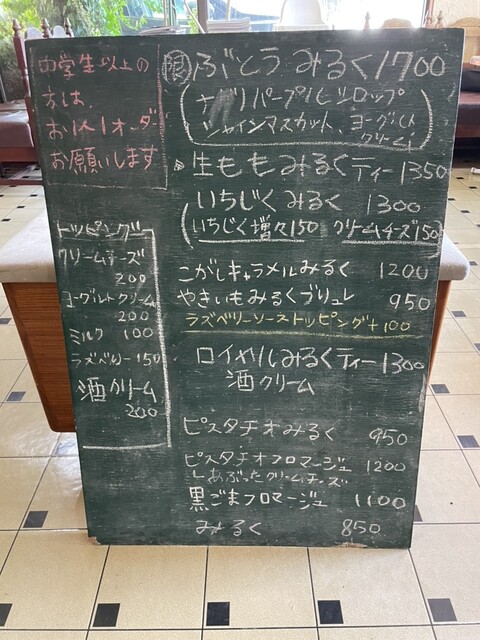 中学生以上の
方は、
お1人1オーダー
お願いします
トッピング
クリームチーズ
200
ヨーグルトクリーム
200
ミルク 100
ラズベリー 150
酒クリーム
200
限 ぶどうみるく 1700
(ナガノパープルシロップ
シャインマスカット、ヨーグルト
クリーム)
生ももみるくティー 1350
いちじくみるく 1300
(いちじく増々150 クリームチーズ150
こがしキャラメルみるく 1200
やきいもみるくブリュレ 950
ラズベリーソーストッピング+100
ロイヤルみるくティー 1300
酒クリーム
ピスタチオみるく 950
ピスタチオフロマージュ 1200
あぶったクリームチーズ
黒ごまフロマージュ 1100
みるく 850